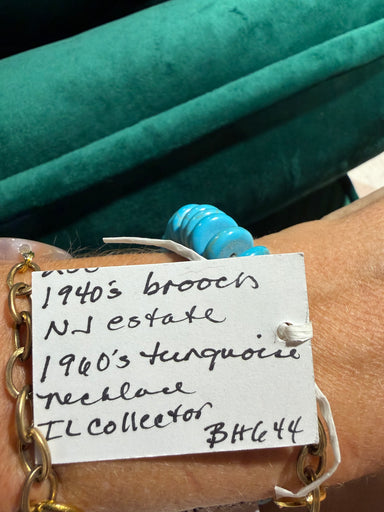 1940's brooch
NJ estate
1960's turquoise
necklace
IL collector
BH644